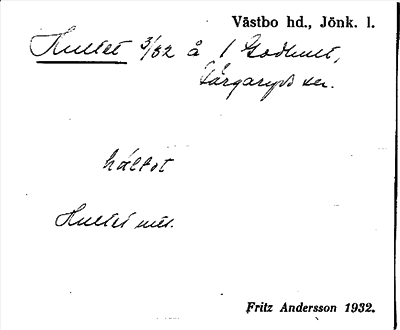 Västbo hd., Jönk. l.
Hultet 3/32 å 1 Godhult,
Färgaryds sn.
húltət
Hultet mtl.
Fritz Andersson 1932.